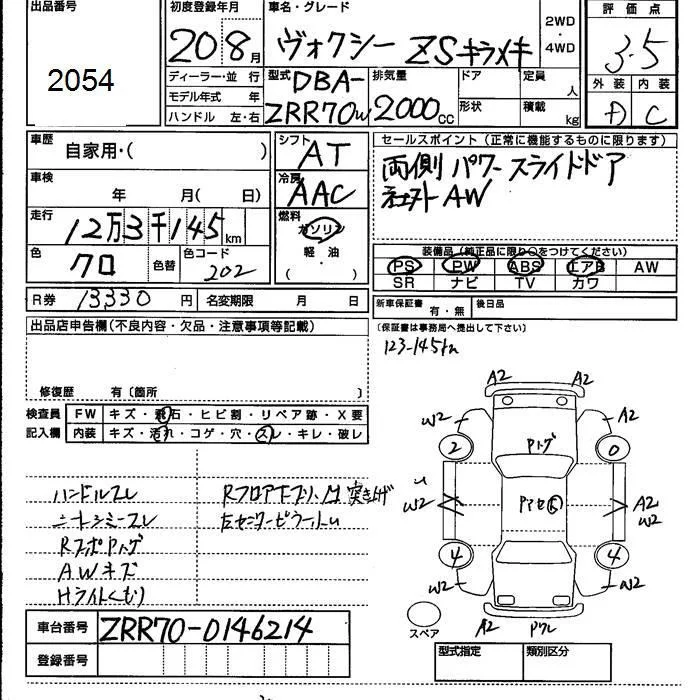 出品番号
2054
初度登録年月
20 8月
車名・グレード
ヴォクシー ZSキラメキ
2WD
・
4WD
評価点
3.5
外装 内装
A C
ディーラー・並 行
モデル年式 年
ハンドル 左・右
型式
DBA-
ZRR70W
排気量
2000cc
ドア
形状
定員
人
積載
kg
車歴
自家用・( )
車検
年 月( 日)
走行
12万3千145km
色
クロ
色替
色コード
202
シフト
AT
冷房
AAC
燃料
ガソリン
軽油
( ・ )
セールスポイント(正常に機能するものに限ります)
両側 パワースライドドア
AW
装備品(純正品に限り○をつけてください)
PS PW ABS エアB AW
SR ナビ TV カワ
R券 13330 円
名変期限 月 日
新車保証書 有・無
後日品
(保証書は事務局へ提出して下さい)
123-145km
出品店申告欄(不良内容・欠品・注意事項等記載)
修復歴 有〔箇所 〕
検査員 FW キズ・飛石・ヒビ割・リペア跡・X要
記入欄 内装 キズ・汚れ・コゲ・穴・スレ・キレ・破レ
ハンドルスレ
AWキズ
Hライトくもり
A2 A2
W2 A2
2 0
Pハゲ
W2 A2
W2
4 4
W2 W2
A2
スペア
車台番号 ZRR70-0146214
登録番号
型式指定 類別区分